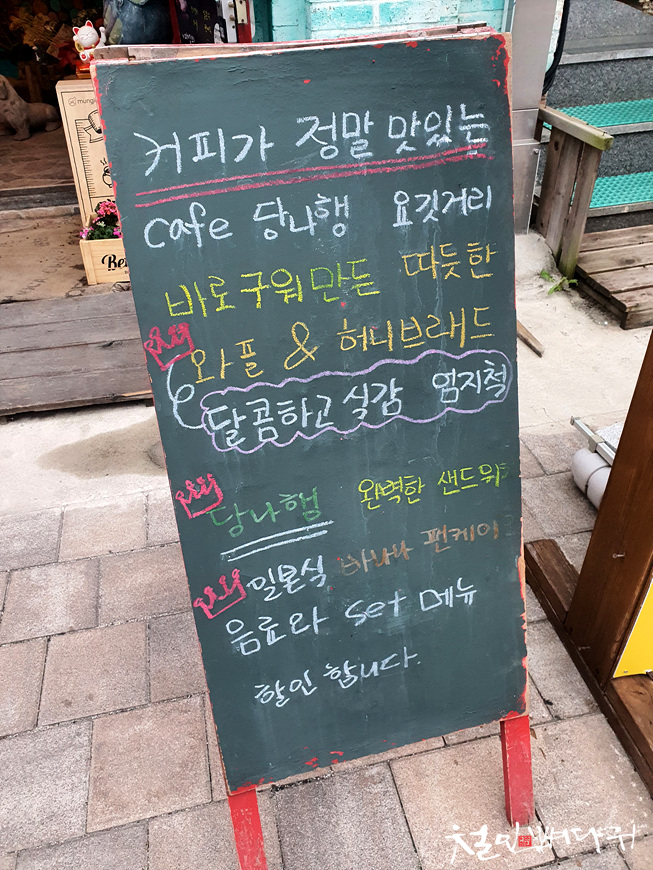 커피가 정말 맛있는
cafe 당나행 요깃거리
바로구워만든 따듯한
와플 & 허니브래드
달콤하고 실감 엄지척
당나행 완벽한 샌드위
일본식 바나나 팬케이크
음료와 set 메뉴
할인 합니다.